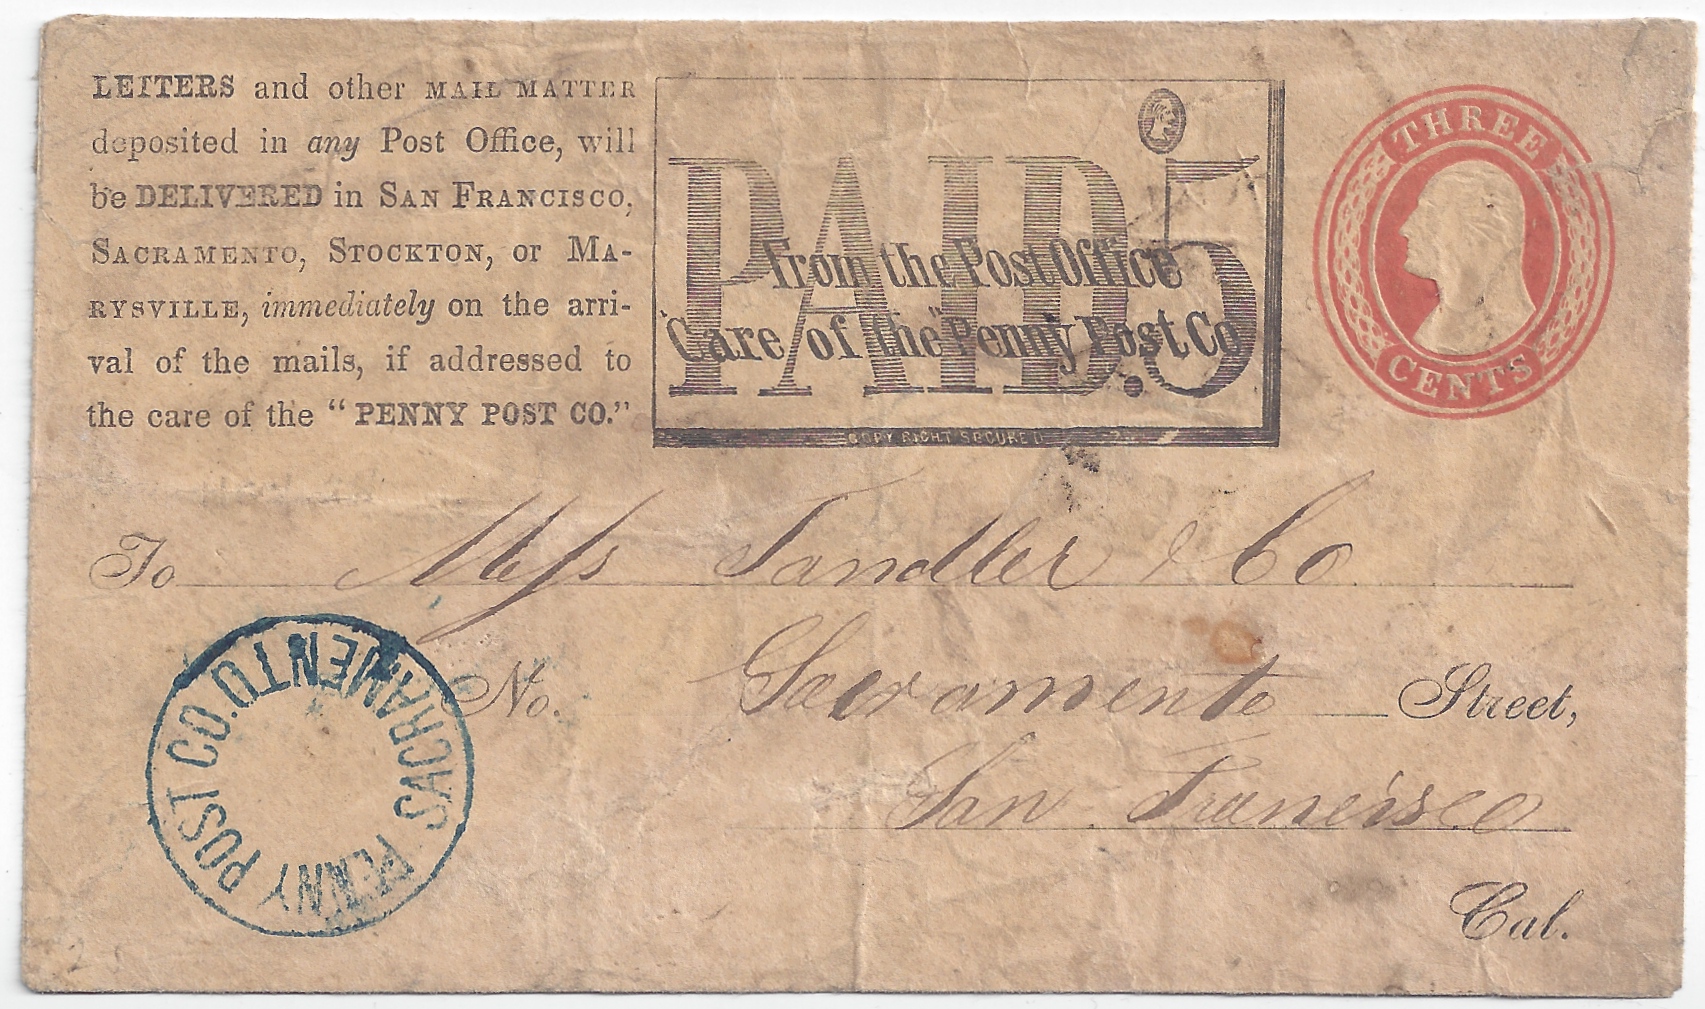 LETTERS and other MAIL MATTER
deposited in any Post Office, will
be DELIVERED in SAN FRANCISCO,
SACRAMENTO, STOCKTON, or MA-
RYSVILLE, immediately on the arri-
val of the mails, if addressed to
the care of the "PENNY POST CO."
PAID 5
From the Post Office
Care of the "Penny Post Co
COPY RIGHT SECURED
THREE
CENTS
To Mess Sandler & Co
No. Sacramento Street,
San Francisco
Cal.
PENNY POST CO.
SACRAMENTO